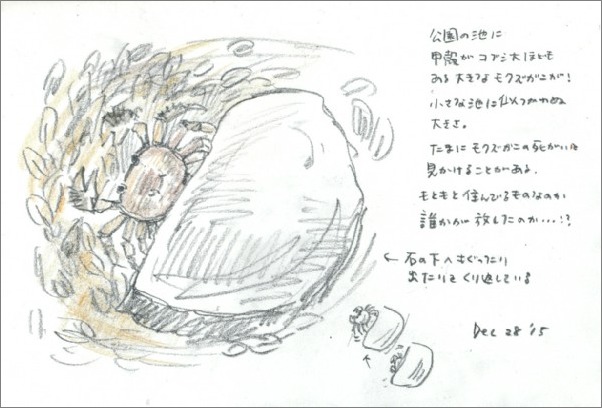 公園の池に
甲殻がコブシ大ほども
ある大きなモクズガニが!
小さな池に似つかわぬ
大きさ。
たまにモクズガニの死がいは
見かけることがある。
もともと住んでるものなのか
誰かが放したのか…!?
← 石の下へもぐったり
出たりをくり返している
Dec 28 '15